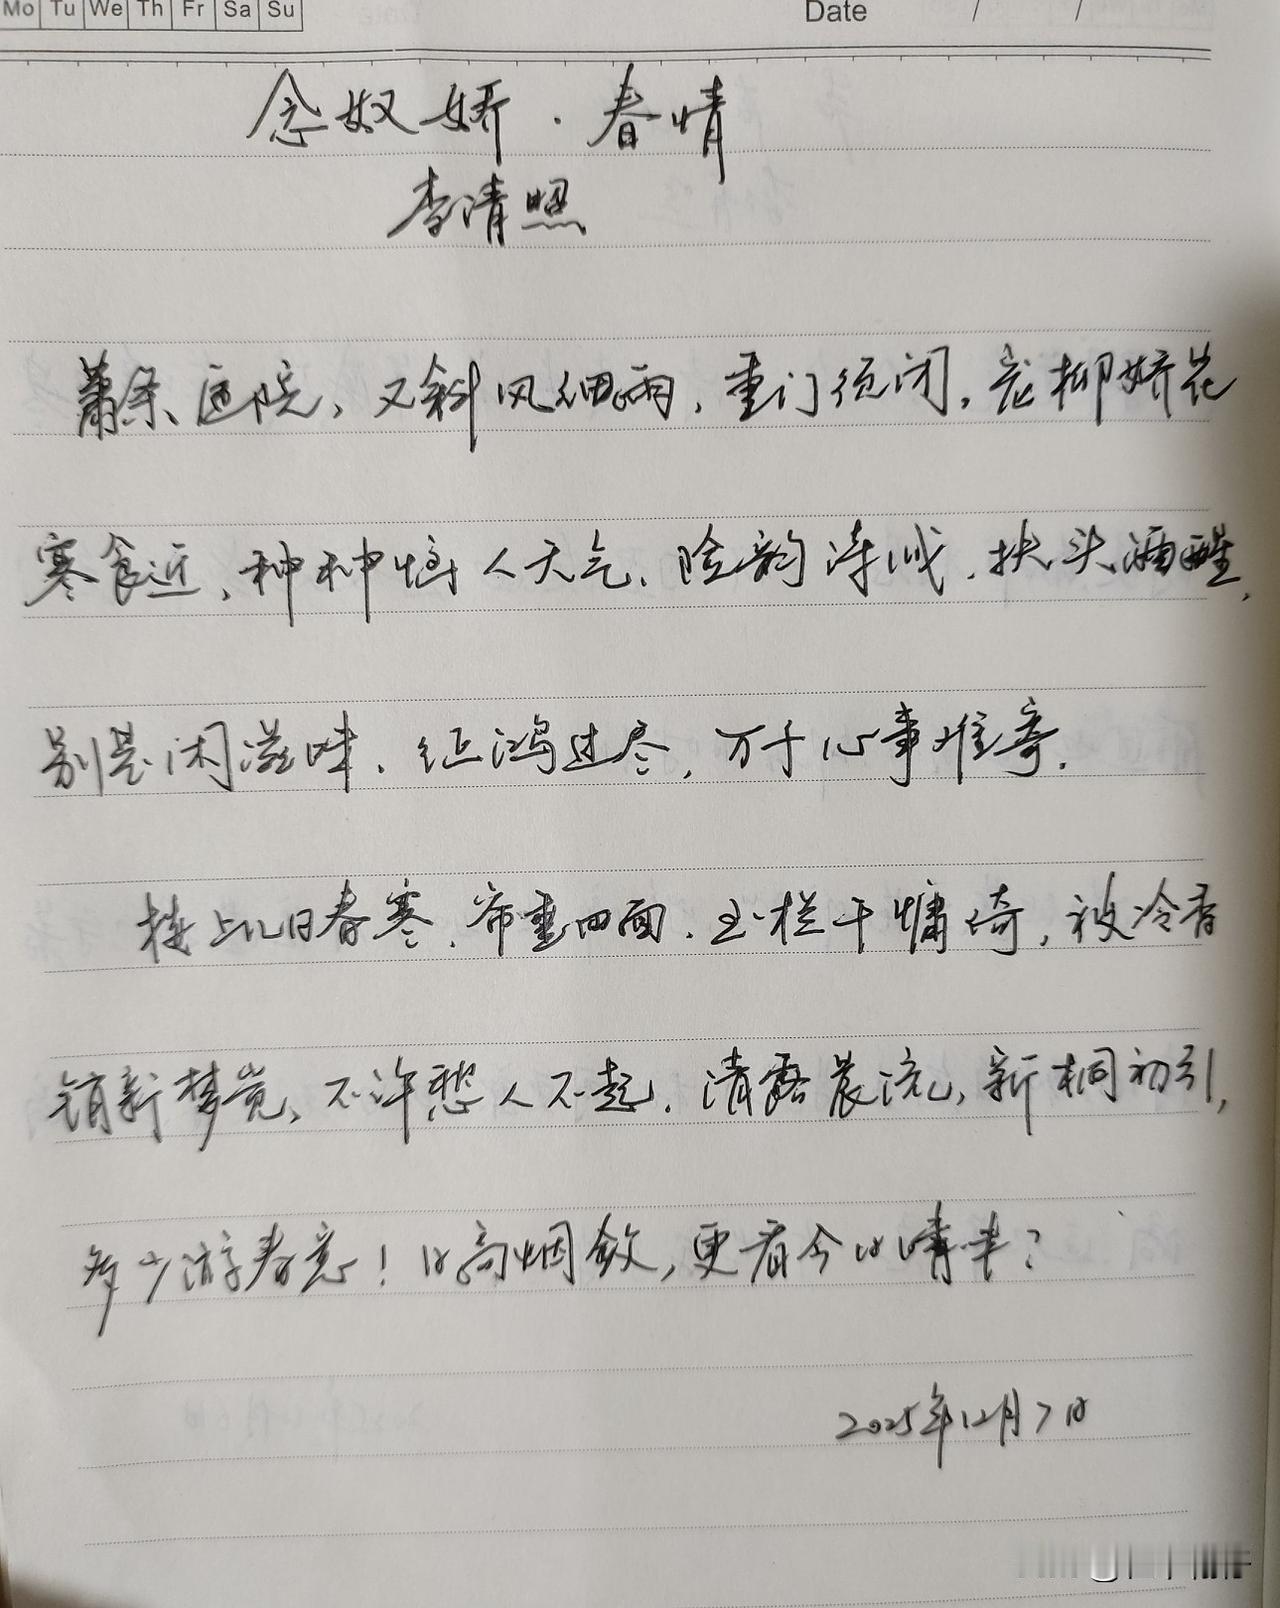 Mo Tu We Th Fr Sa Su Date / /
念奴娇·春情
李清照
萧条庭院，又斜风细雨，重门须闭，宠柳娇花
寒食近，种种恼人天气、险韵诗成，扶头酒醒，
别是闲滋味．征鸿过尽，万千心事难寄．
楼上几日春寒，帘垂四面．玉栏干慵倚，被冷香
销新梦觉、不许愁人不起．清露晨流，新桐初引，
多少游春意！日高烟敛，更看今日晴未？
2025年12月7日